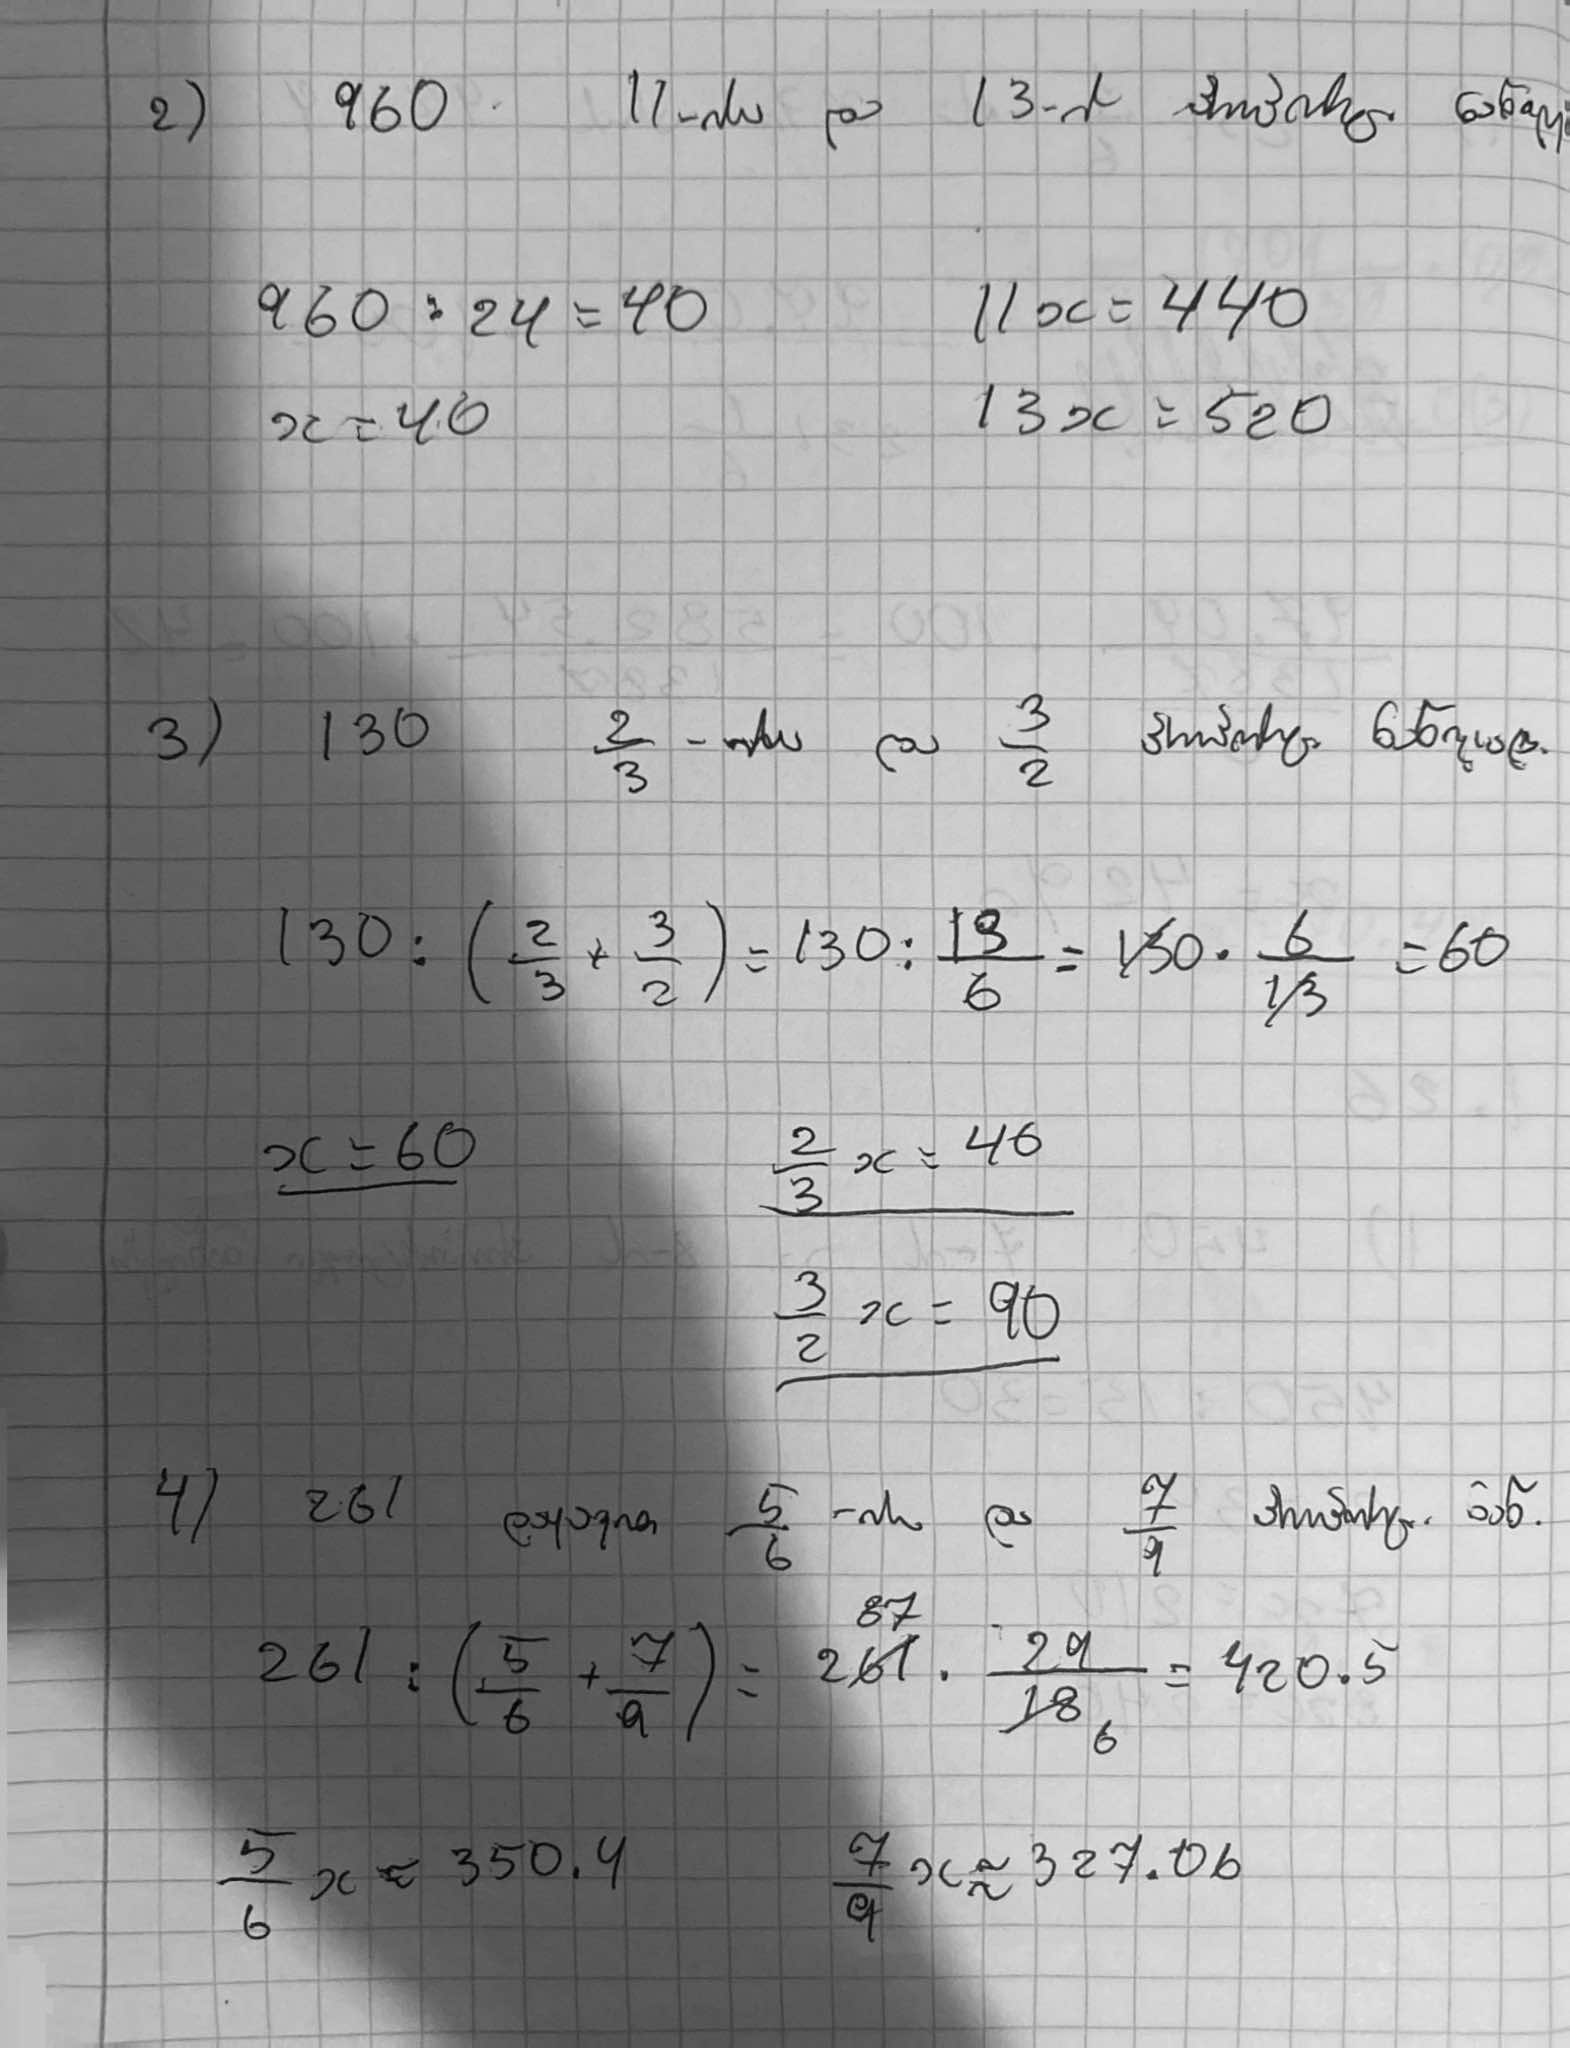 2) 960 11-ისა და 13-ის პროპორც. ნაწილ
960 : 24 = 40 11x = 440
x = 40 13x = 520
3) 130 2/3 -ისა და 3/2 პროპორც.
130 : (2/3 + 3/2) = 130 : 13/6 = 130 · 6/13 = 60
x = 60 2/3 x = 40
3/2 x = 90
4) 261 დაყავით 5/6 -ის და 7/9 პროპორც. ნაწ.
87
261 : (5/6 + 7/9) = 261 · 29/18 6 = 420.5
5/6 x ≈ 350.4 7/9 x ≈ 327.06